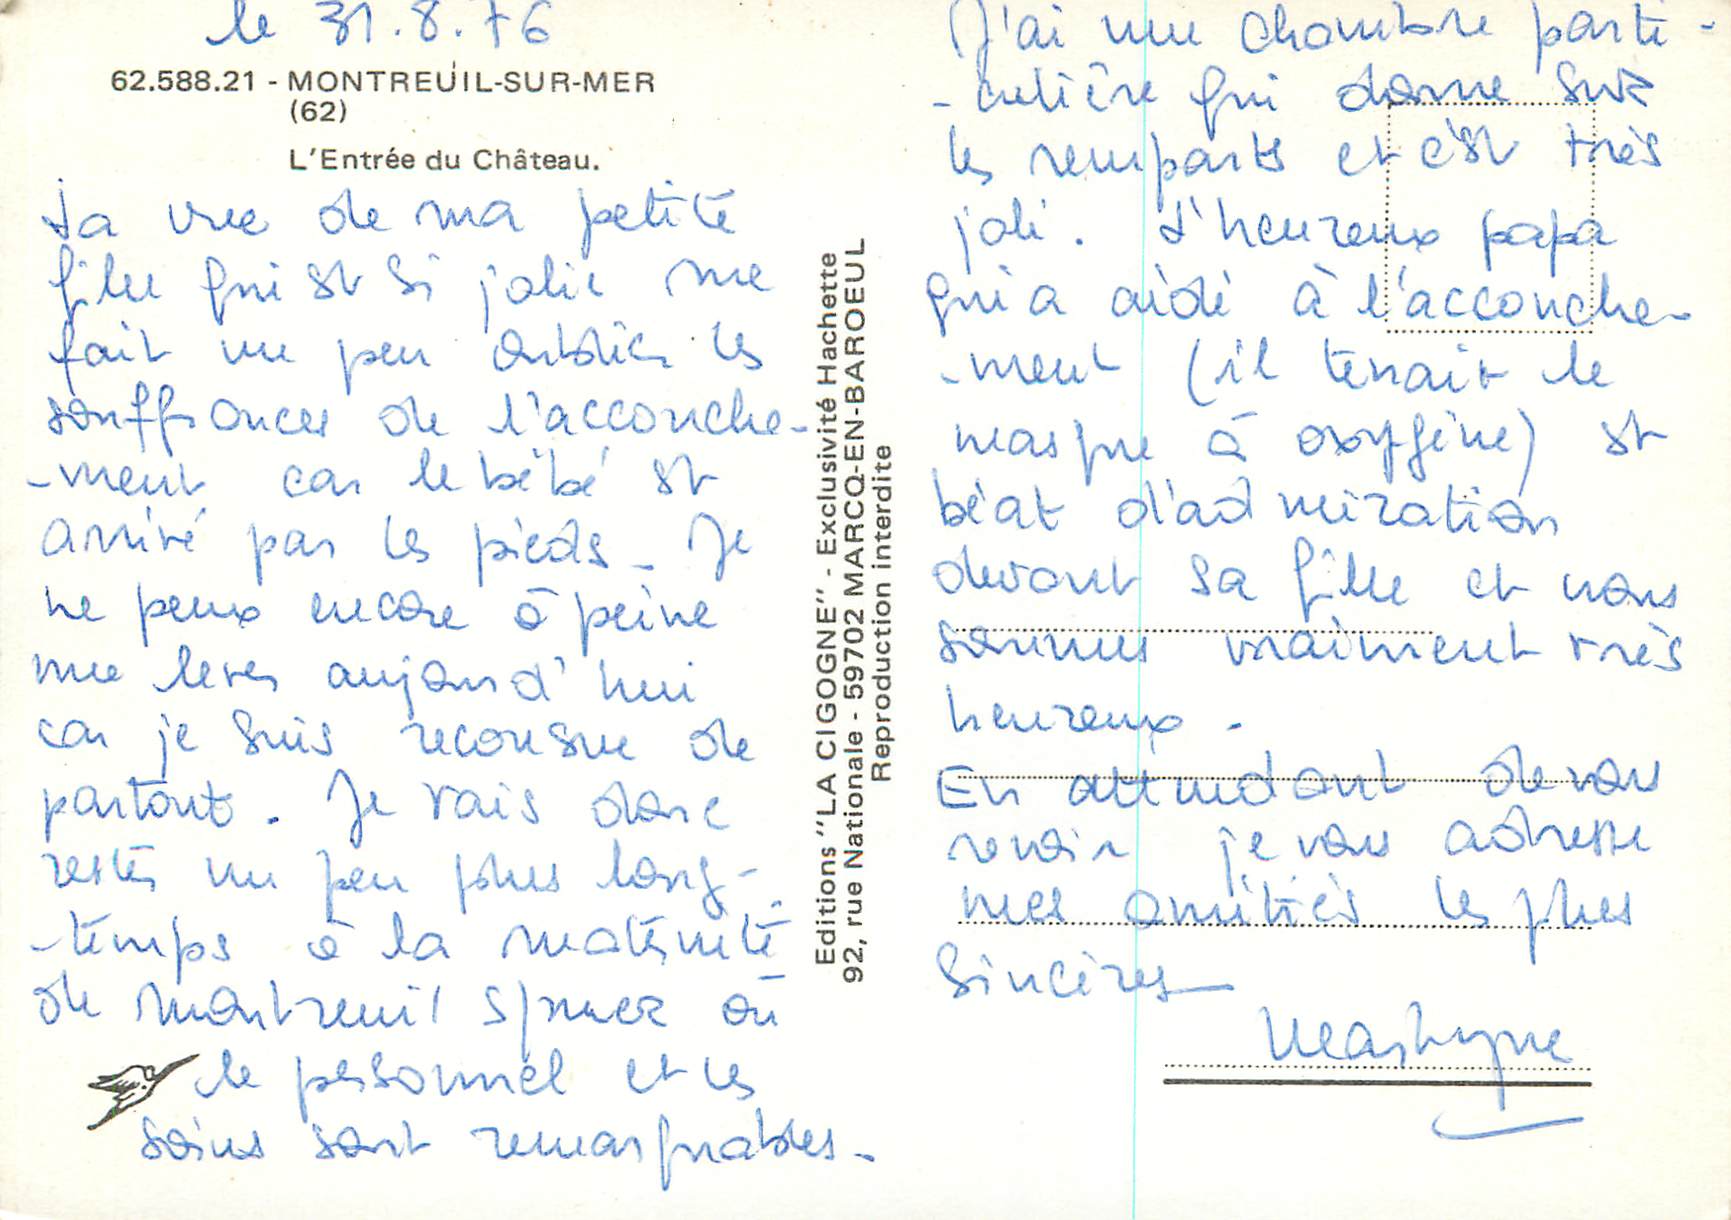 le 31.8.76
62.588.21 - MONTREUIL-SUR-MER
(62)
L'Entrée du Château.
La vue de ma petite
fille qui est si jolie me
fait un peu oublier les
souffrances de l'accouche-
-ment car le bébé est
arrivé par les pieds - Je
ne peux encore à peine
me lever aujourd'hui
car je suis recousue de
partout. Je vais donc
rester un peu plus long-
-temps à la maternité
de Montreuil s/mer où
le personnel et les
soins sont remarquables -
Editions "LA CIGOGNE" - Exclusivité Hachette
92, rue Nationale - 59702 MARCQ-EN-BAROEUL
Reproduction interdite
J'ai une chambre parti-
-culière qui donne sur
les remparts et c'est très
joli. L'heureux papa
qui a aidé à l'accouche-
-ment (il tenait le
masque à oxygène) est
béat d'admiration
devant sa fille et nous
sommes vraiment très
heureux -
En attendant de vous
revoir je vous adresse
mes amitiés les plus
sincères